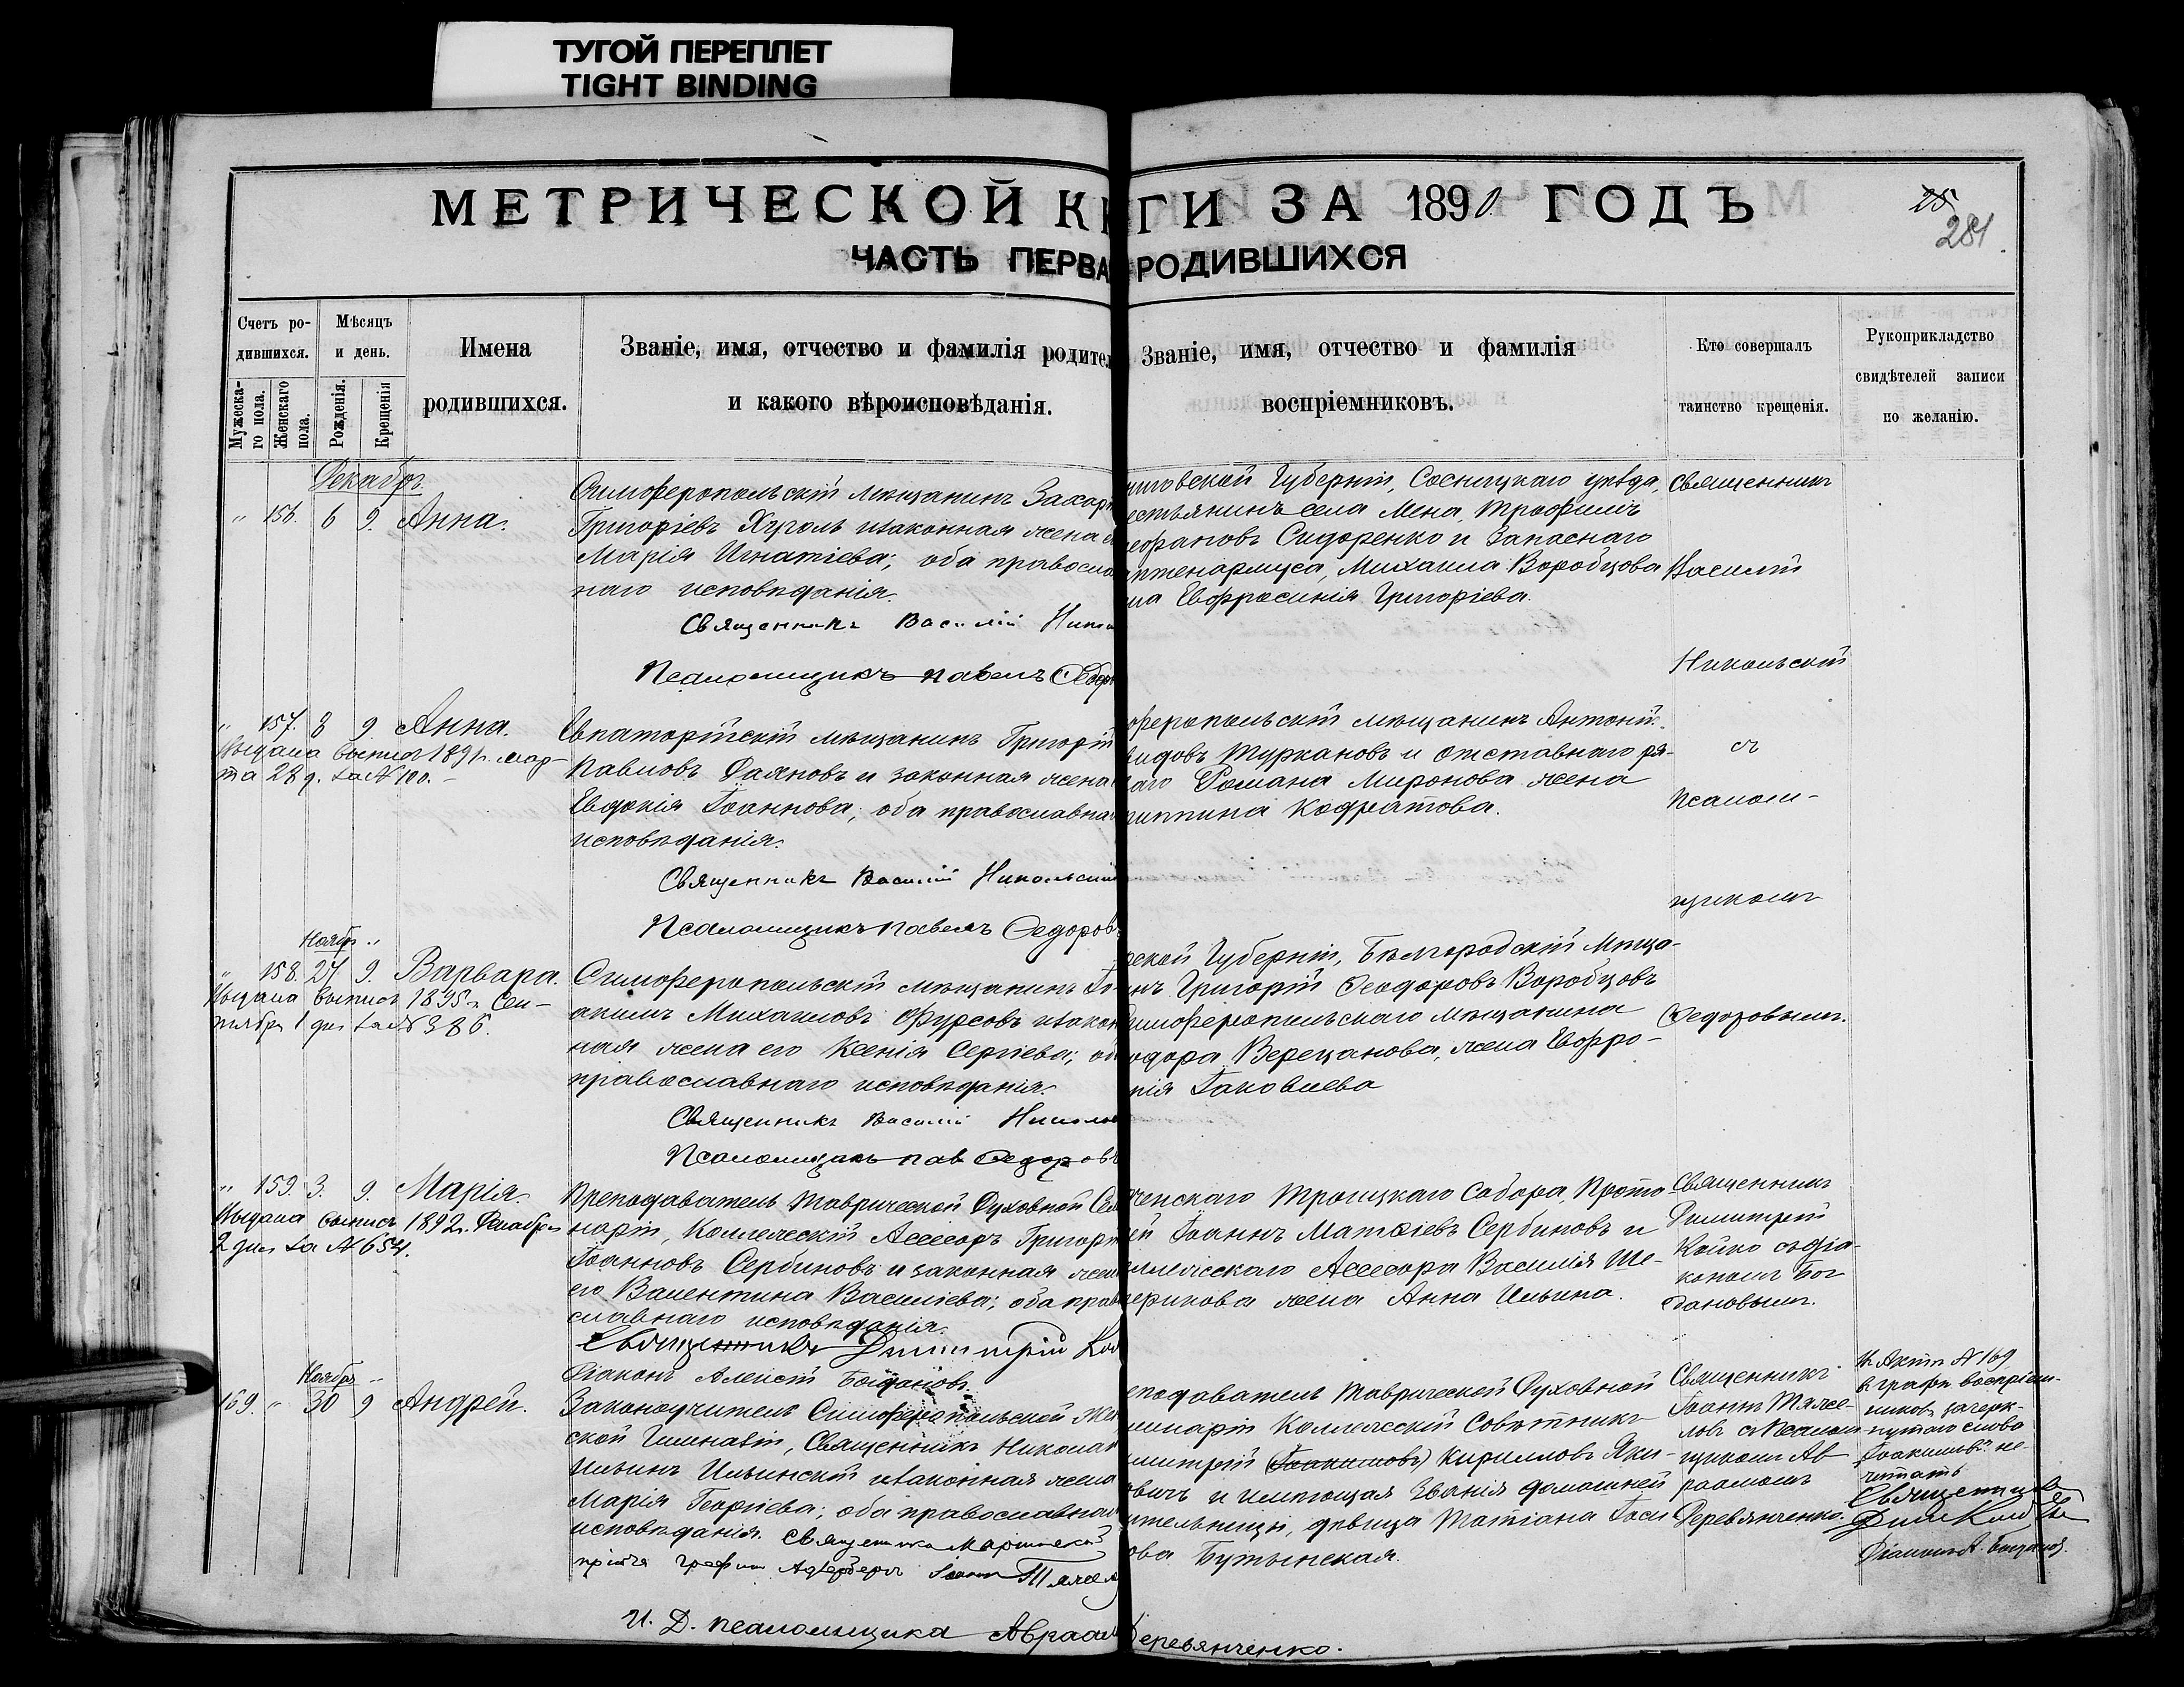 ТУГОЙ ПЕРЕПЛЕТ
TIGHT BINDING
МЕТРИЧЕСКОЙ К
ГИ ЗА 1890 ГОДЪ
25
281
ЧАСТЬ ПЕРВА
РОДИВШИХСЯ
Счетъ ро-
дившихся.
Мужеска-
го пола.
Женскаго
пола.
Мѣсяцъ
и день.
Рожденія.
Крещенія
Имена
родившихся.
Званіе, имя, отчество и фамилія родите
и какого вѣроисповѣданія.
Званіе, имя, отчество и фамилія
воспріемниковъ.
Кто совершалъ
таинство крещенія.
Рукоприкладство
свидѣтелей записи
по желанію.
Декабрь
" 156. 6 9. Анна.
Симферопольскій мѣщанинъ Захар
Григоріевъ законная жена
Марія Игнатіева; оба правосла
наго исповѣданія.
Священникъ Василій Нико
Псаломщикъ Павелъ Ѳедор
говской Губерніи, Сосницкаго уѣзда,
естьянинъ села Мена, Трофимъ
еофановъ Сидоренко и Запаснаго
птенармуса, Михаила Воробцова
на Евфросинія Григоріева.
Священникъ
Василій
Никольскій
съ
псалом-
щикомъ
Ѳедоровымъ.
" 157. 8 9 Анна.
Выдана выпись 1891 г. мар-
та 28 д. за № 100.-
Евпаторійскій мѣщанинъ Григорій
Павловъ Даяновъ и законная жена
Евдокія Іоаннова; оба православна
исповѣданія.
Священникъ Василій Никольскій
Псаломщикъ Павелъ Ѳедоровъ
феропольскій мѣщанинъ Антоній
видовъ Туркановъ и отставнаго ря-
аго Романа Миронова жена
иппина Кодратова.
Ноябрь "
" 158. 27 9. Варвара.
Выдана выпись 1895 г. Сен-
тября 1 дня за № 386.
Симферопольскій мѣщанинъ Іо-
акимъ Михаиловъ Фурсовъ и закон
ная жена его Ксенія Сергіева; об
православнаго исповѣданія.
Священникъ Василій Николь
Псаломщикъ Пав Ѳедоровъ
ской Губерніи, Бѣлгородскій Мѣща-
нъ Григорій Ѳеодоровъ Воробцовъ
имферопольскаго мѣщанина
одора Верещанова, жена Евфро-
нія Іаковлева
" 159. 3. 9. Марія.
Выдана выпись 1892 г. Декабря
2 дня за № 654.
Преподаватель Таврической Духовной Сем
наріи, Коллежскій Ассесоръ Григорій
Іоанновъ Сербиновъ и законная жена
его Валентина Василіева; оба прав
славнаго исповѣданія.
Священникъ Димитрій Кой
Діаконъ Алексій Богдановъ.
ченскаго Троицкаго Собора, Прото
ей Іоаннъ Матѳіевъ Сербиновъ и
ллежскаго Ассесора Василія Ше-
ерикова жена Анна Ильина.
Священникъ
Димитрій
Койко съ діа-
кономъ Бог
дановымъ.
Ноябрь "
169. " 30 9 Андрей.
Законоучитель Симферопольской Жен
ской Гимназіи, Священникъ Никола
Ильинъ Ильинскій и законная жена
Марія Георгіева; оба православна
исповѣданія. Священникъ Маріинской
пріюта Графини Адлербергъ Іоаннъ Тяжел
И. Д. псаломщика Авраам
Деревянченко.
еподаватель Таврической Духовной
минаріи Коллежскій Совѣтникъ
имитрій (Іоакимовъ) Кирилловъ Яки-
овичъ и имѣющая званія домашней
ительницы, дѣвица Татіана Іаси
ова Бутынская.
Священникъ
Іоаннъ Тяже-
ловъ съ Псалом-
щикомъ Ав
раамомъ
Деревянченко.
Въ Актѣ № 169
въ графѣ воспріем-
никовъ зачерк-
нутаго слова
"Іоакимовъ" не
читать
Священникъ
Дим Койко
Діаконъ А. Богданов.